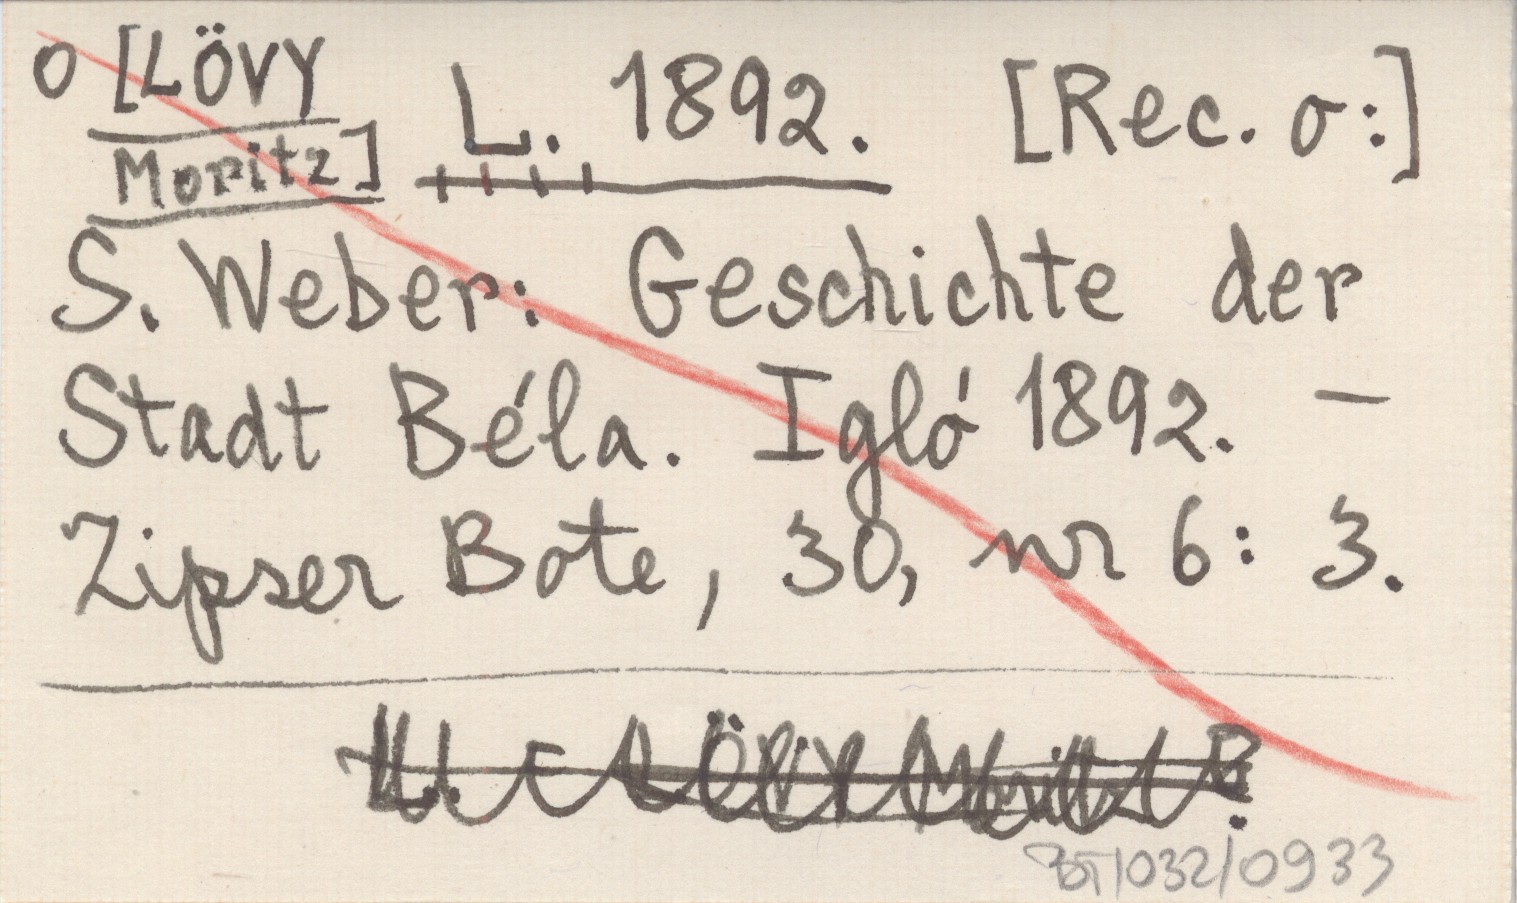 o [LÖVY
Moritz] L. 1892. [Rec. o:]
S. Weber: Geschichte der
Stadt Béla. Igló 1892. —
Zipser Bote, 30, nr 6: 3.
L. = LÖVY Moritz ?
BT/032/0933